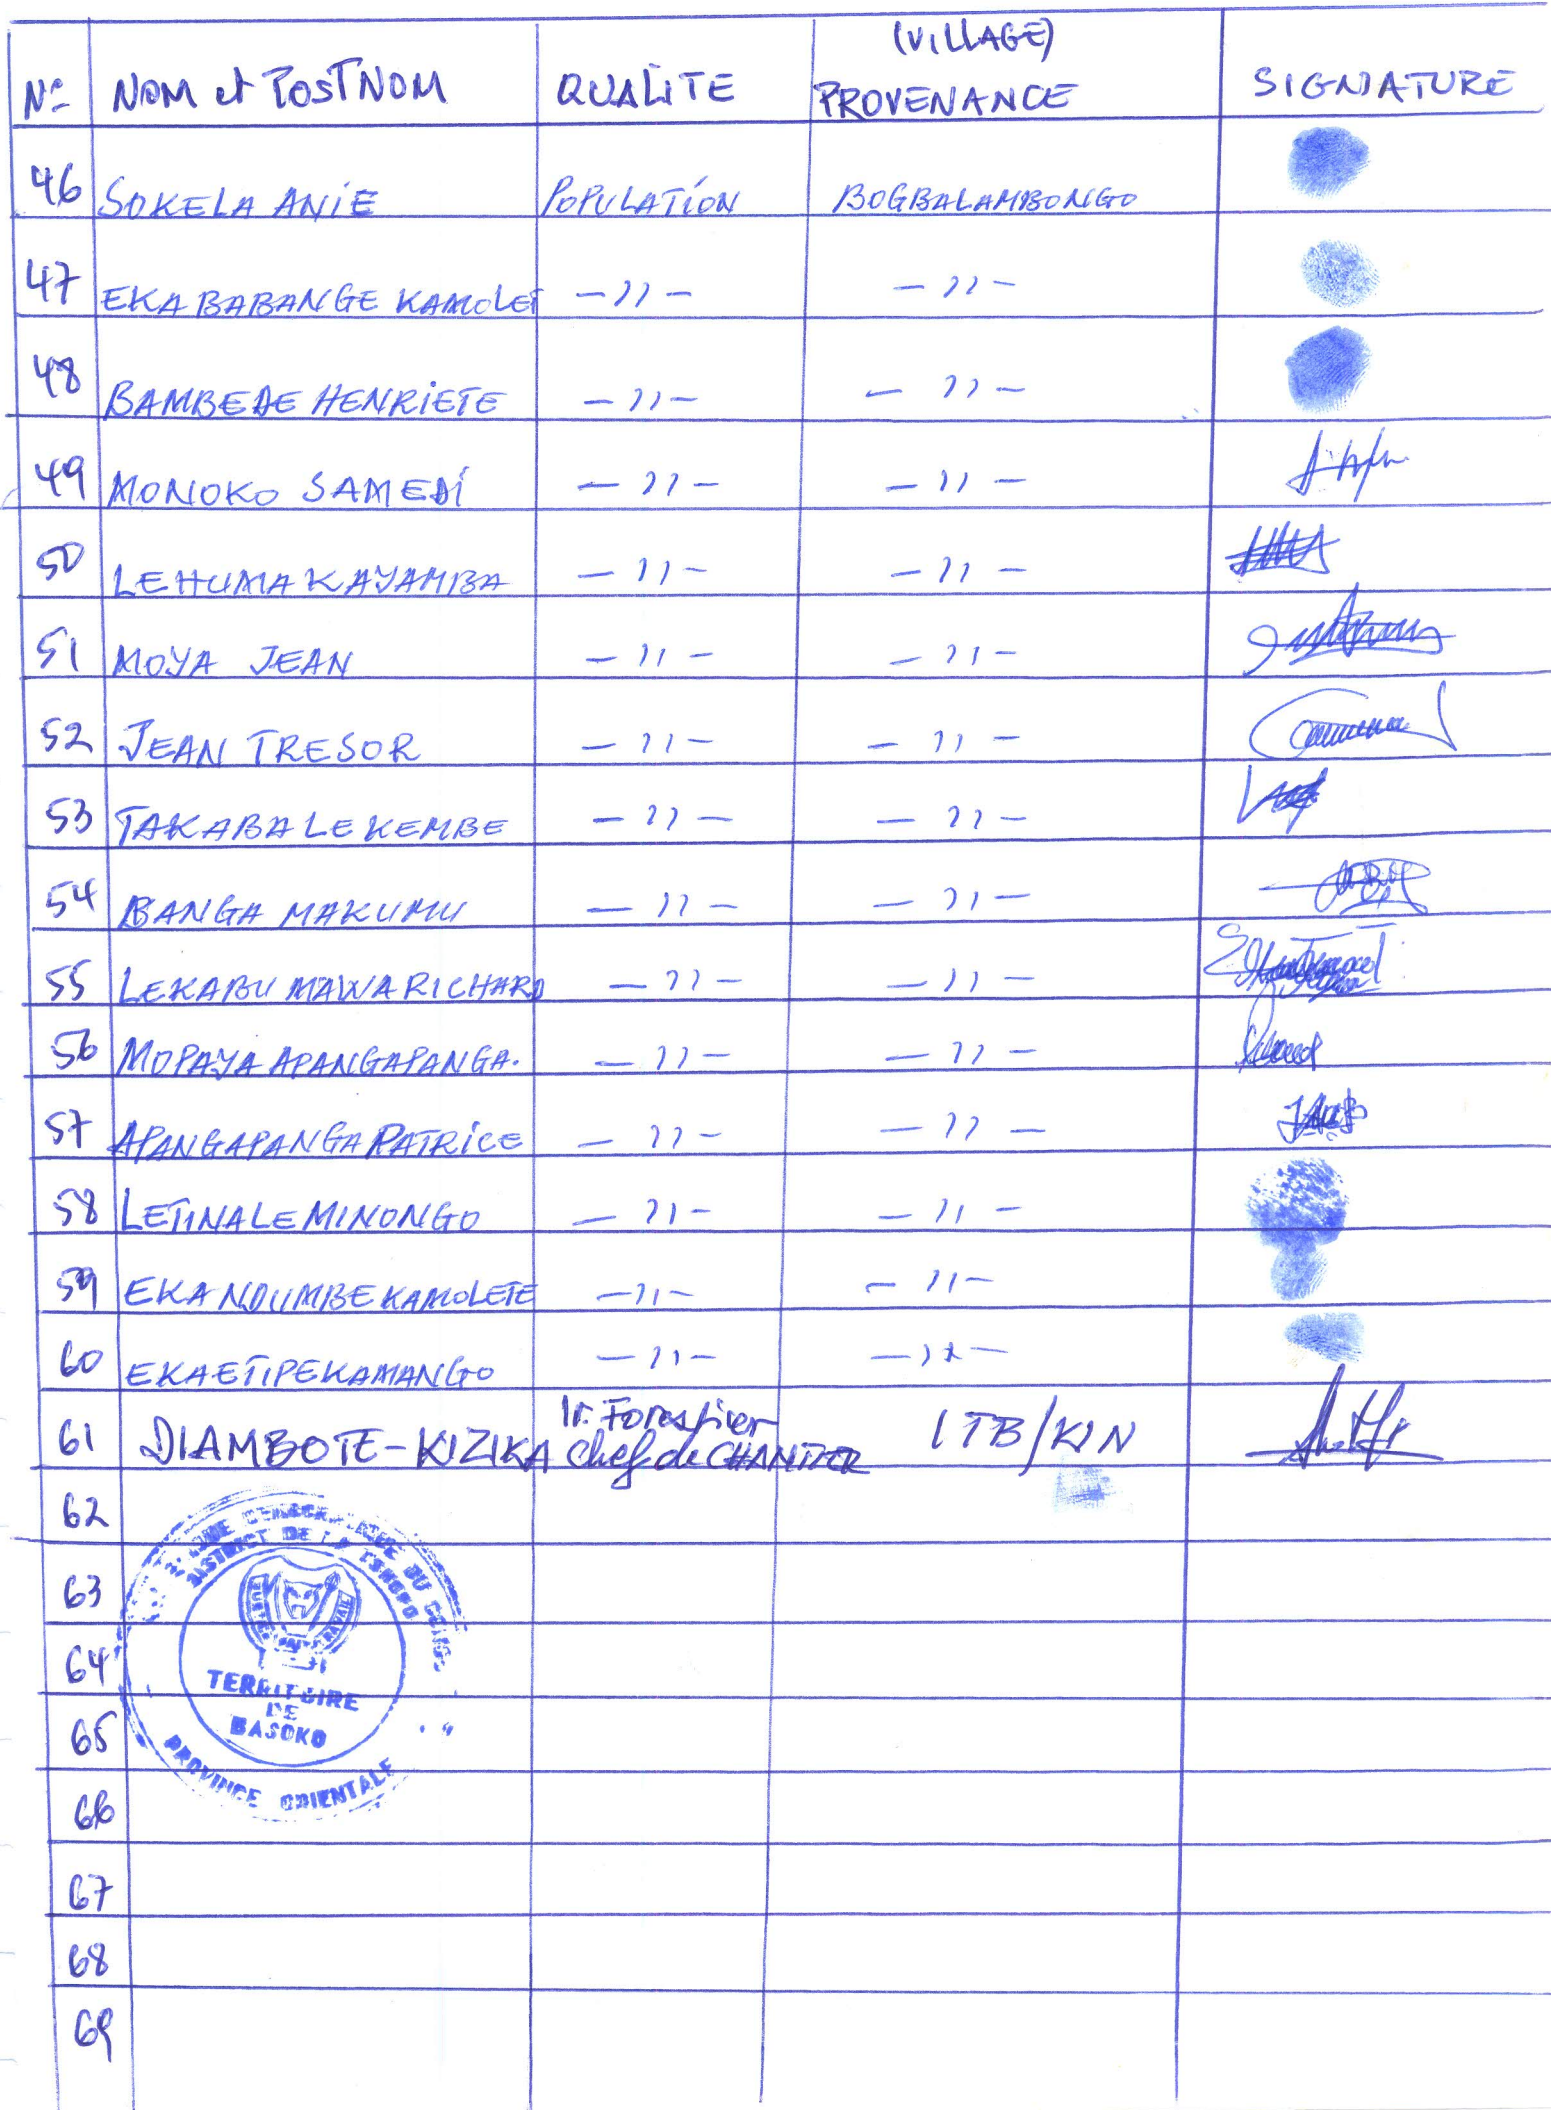 N° NOM et POSTNOM QUALITE (VILLAGE) PROVENANCE SIGNATURE
46 SOKELA ANIE POPULATION BOGBALAMBONGO
47 EKABABANGE KAMOLET -11- -11-
48 BAMBEDE HENRIETE -11- -11-
49 MONOKO SAMEDI -11- -11-
50 LEHUMA KAYAMBA -11- -11-
51 MOYA JEAN -11- -11-
52 JEAN TRESOR -11- -11-
53 TAKABALEKEMBE -11- -11-
54 BANGA MAKUMU -11- -11-
55 LEKABU MAWA RICHARD -11- -11-
56 MOPAYA APANGAPANGA. -11- -11-
57 APANGAPANGA PATRICE -11- -11-
58 LETINALEMINONGO -11- -11-
59 EKANDUMBE KAMOLETE -11- -11-
60 EKAETIPEKAMANGO -11- -11-
61 DIAMBOTE-KIZIKA Ir. Forestier Chef de CHANTIER ITB/KIN
62
63
64
65
66
67
68
69
DISTRICT DE LA TSHOPO
TERRITOIRE
DE
BASOKO
PROVINCE ORIENTALE